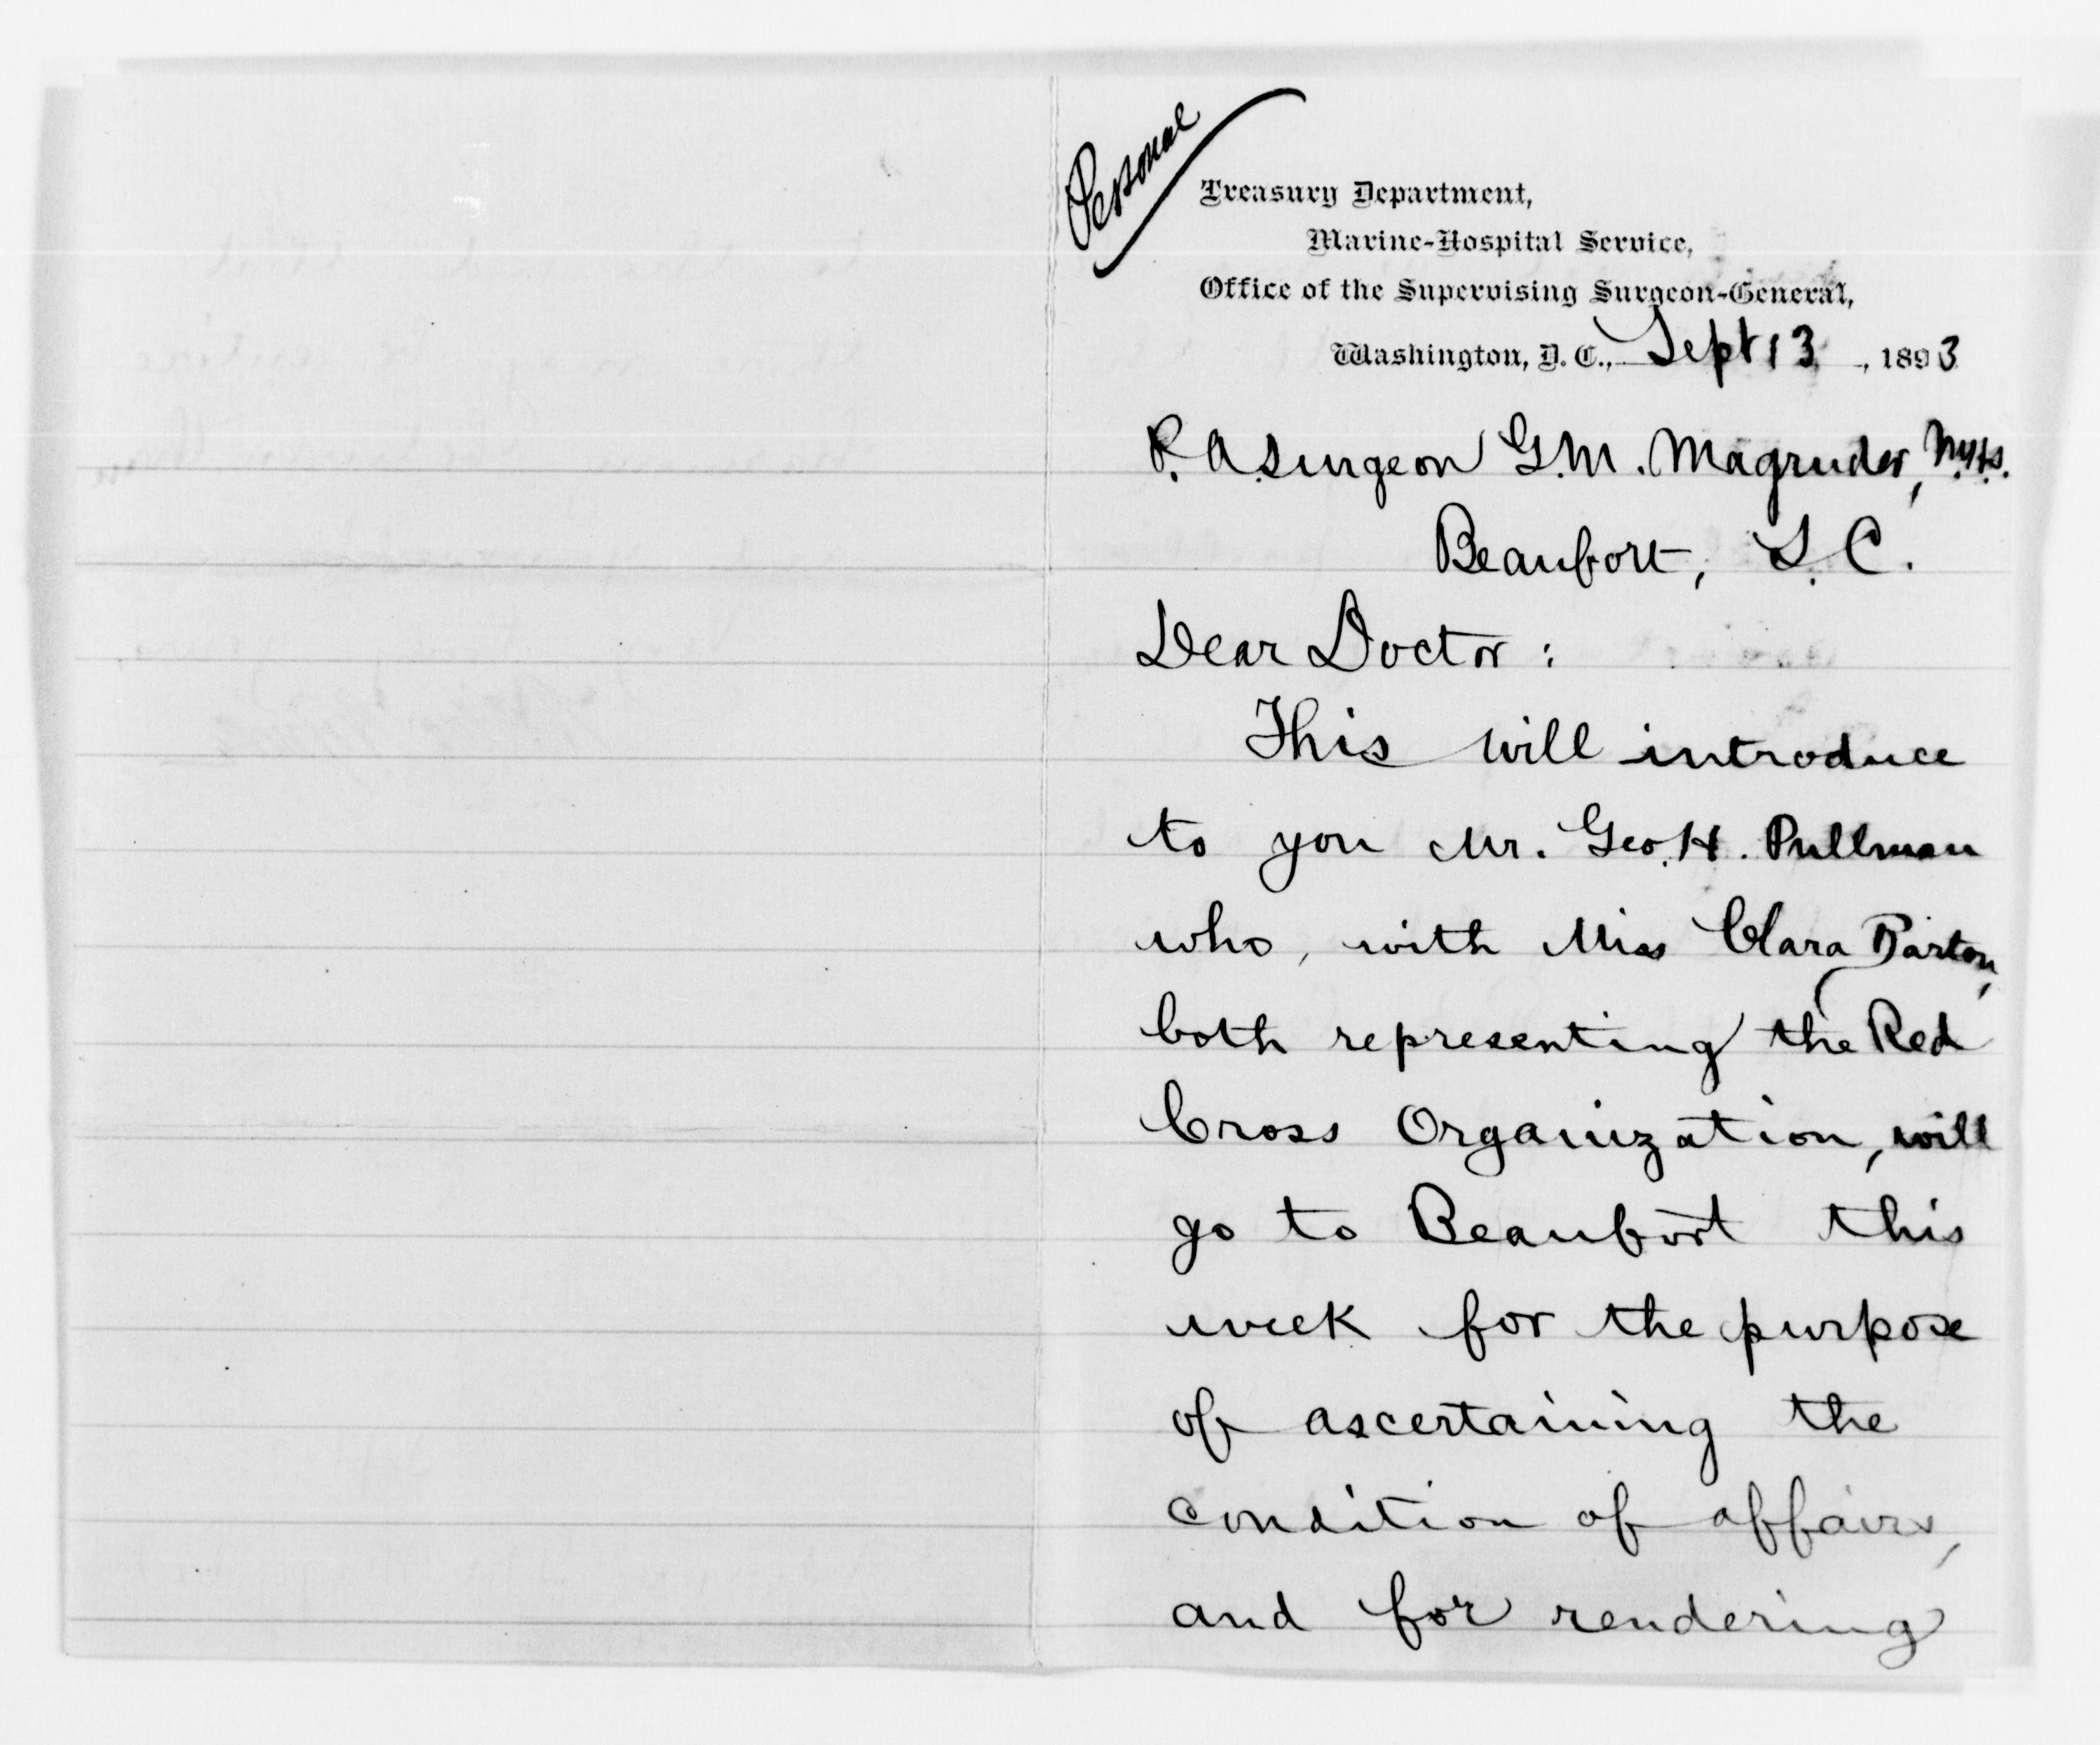 Personal
Treasury Department,
Marine-Hospital Service,
Office of the Supervising Surgeon-General,
Washington, D. C., Sept 13, 1893
P. A. Surgeon G. M. Magruder, M.H.S.
Beaufort, S. C.
Dear Doctor:
This will introduce
to you Mr. Geo. H. Pullman
who, with Miss Clara Barton,
both representing the Red
Cross Organization, will
go to Beaufort this
week for the purpose
of ascertaining the
condition of affairs,
and for rendering